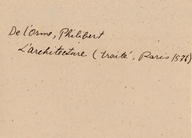 De l'Orme, Philibert
L'architecture (traité, Paris 1576)